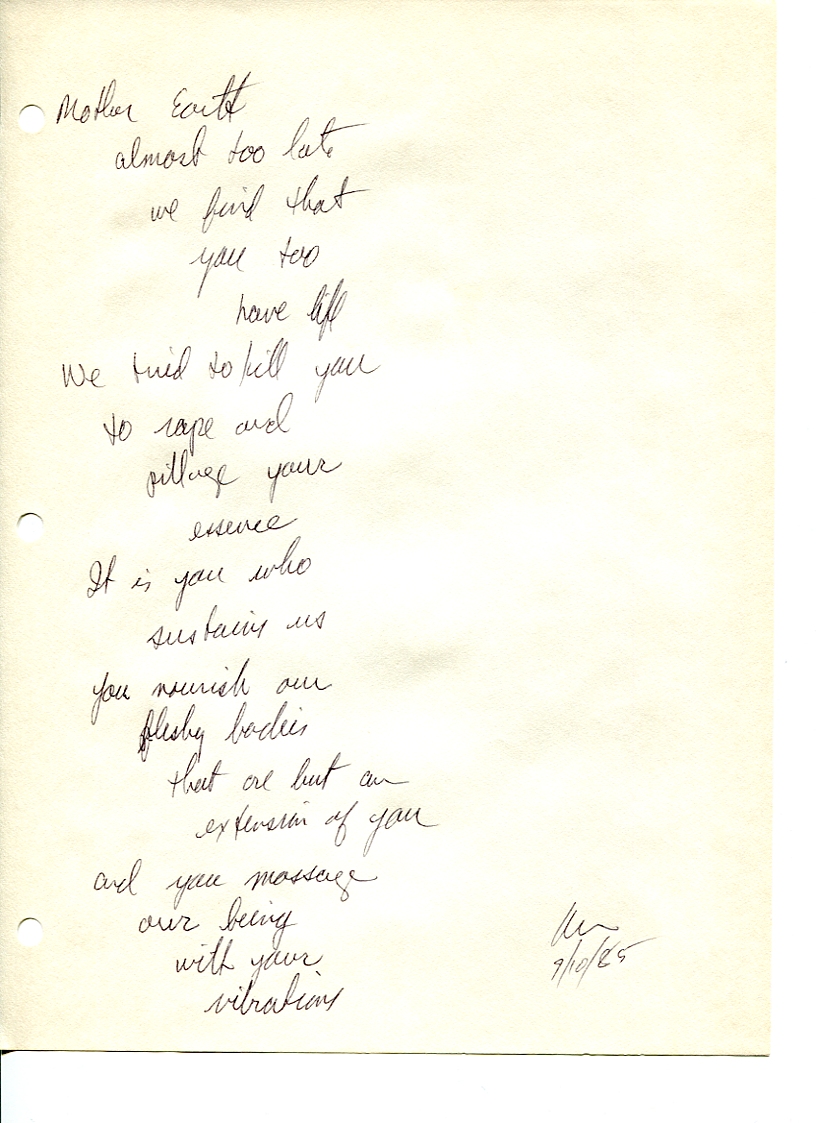 Mother Earth
almost too late
we find that
you too
have life
We tried to kill you
to rape and
pillage your
essence
It is you who
sustains us
you nourish our
fleshy bodies
that are but an
extension of you
and you massage
our being
with your
vibrations
9/10/85